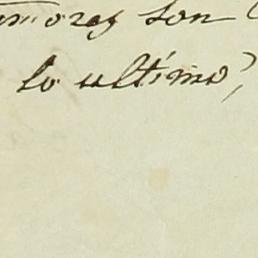 amores son
lo ultimo,